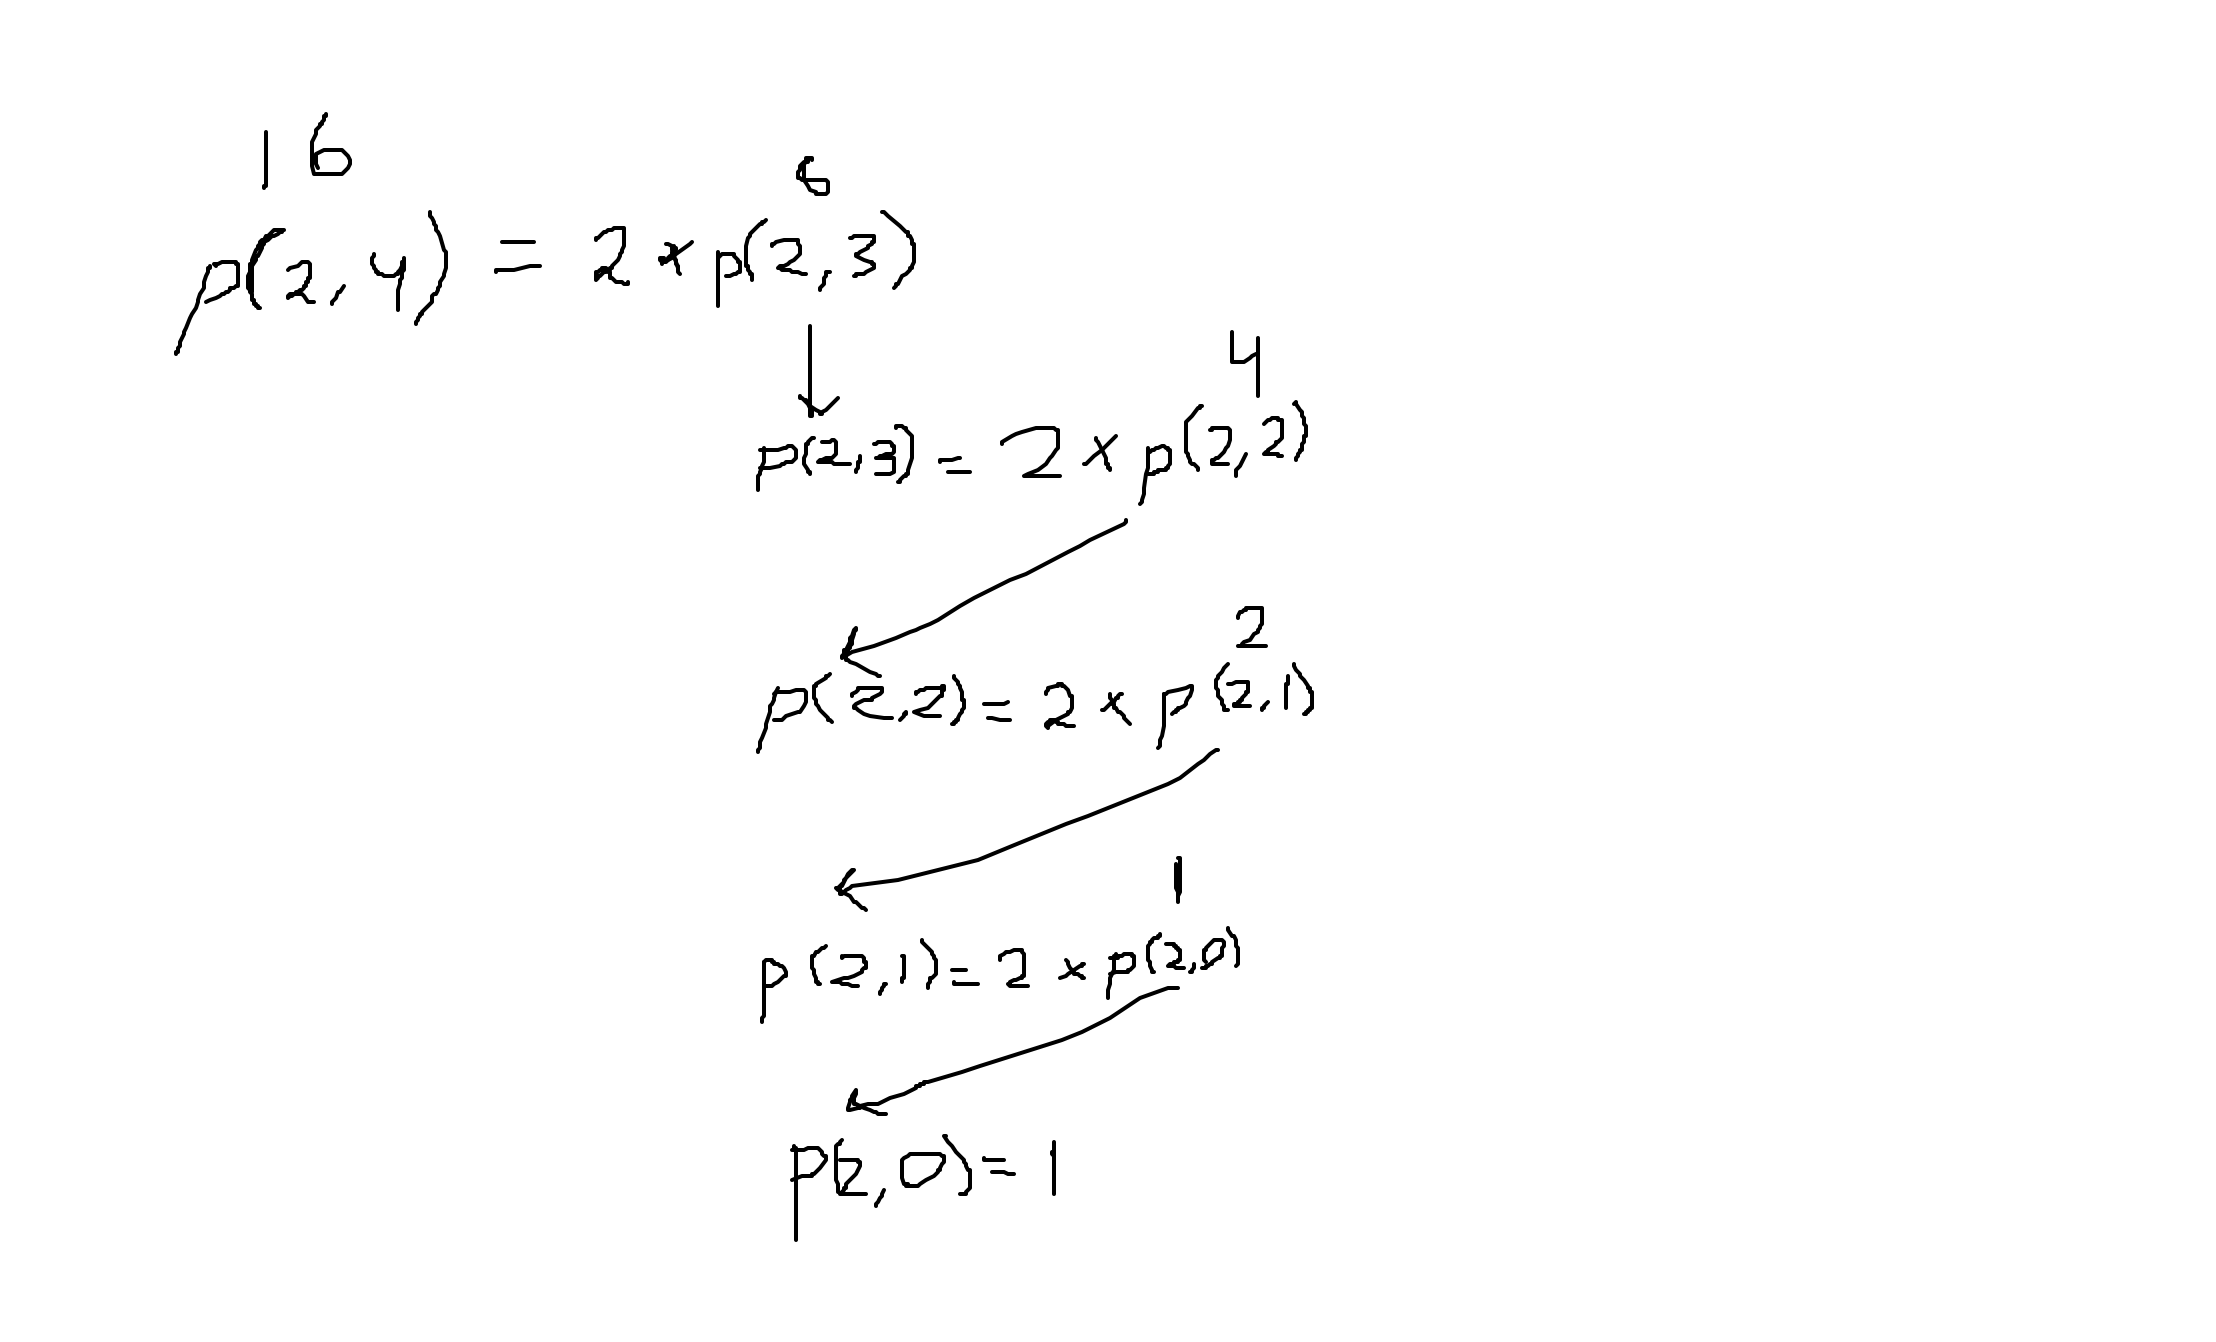 16
6
p(2,4) = 2 * p(2,3)
4
p(2,3) = 2 x p(2,2)
2
p(2,2) = 2 x p(2,1)
1
p(2,1) = 2 x p(2,0)
p(2,0) = 1